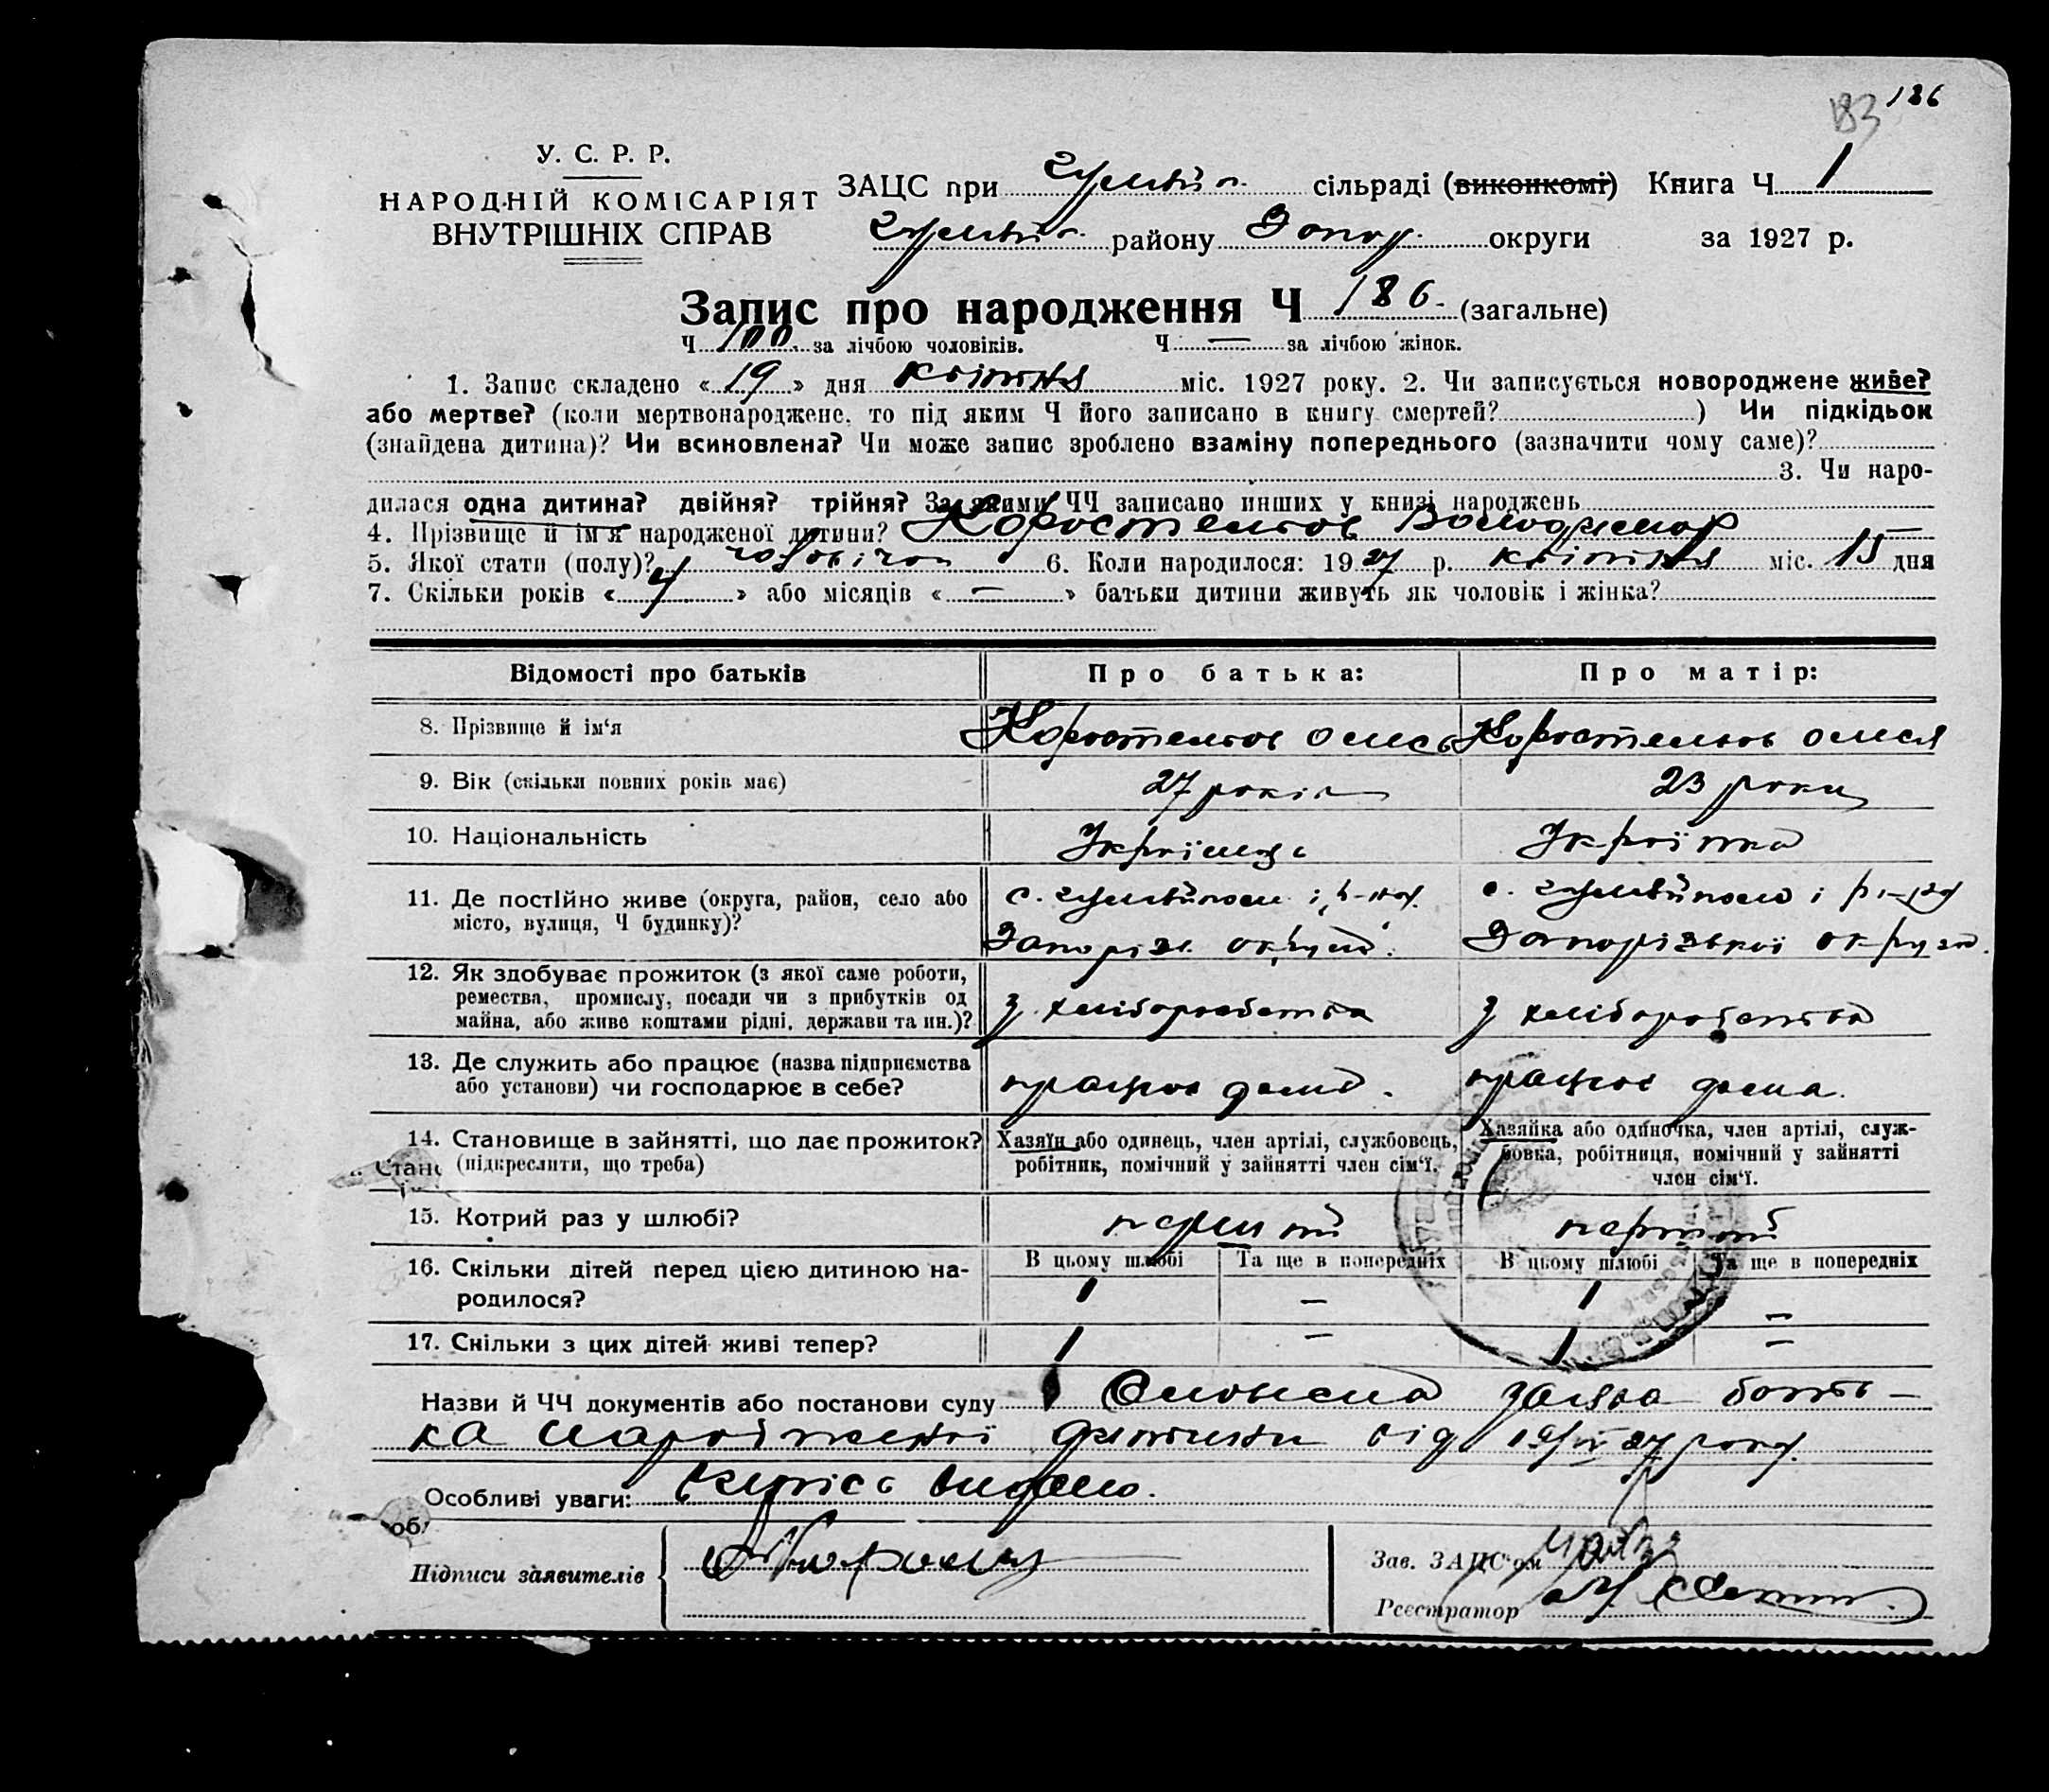 183 186
У. С. Р. Р.
НАРОДНІЙ КОМІСАРІЯТ
ВНУТРІШНІХ СПРАВ
ЗАЦС при Гуляйп. сільраді (виконкомі) Книга Ч 1
Гуляйп. району Запор. округи за 1927 р.
Запис про народження Ч 186. (загальне)
Ч 100. за лічбою чоловіків. Ч — за лічбою жінок.
1. Запис складено « 19 » дня квітня міс. 1927 року. 2. Чи записується новороджене живе?
або мертве? (коли мертвонароджене, то під яким Ч його записано в книгу смертей? ) Чи підкідьок
(знайдена дитина)? Чи всиновлена? Чи може запис зроблено взаміну попереднього (зазначити чому саме)?
3. Чи наро-
дилася одна дитина? двійня? трійня? За якими ЧЧ записано инших у книзі народжень
4. Прізвище й ім'я народженої дитини? Коростельов Володимир —
5. Якої стати (полу)? чоловічої 6. Коли народилося: 1927 р. квітня міс. 15 дня
7. Скільки років « 4 » або місяців « — » батьки дитини живуть як чоловік і жінка?
Відомості про батьків Про батька: Про матір:
8. Прізвище й ім'я Коростельов Коростельов
9. Вік (скільки повних років має) 27 років 23 роки
10. Національність Українець Українка
11. Де постійно живе (округа, район, село або с. Гуляйполе і р-ну с. Гуляйполе і р-ну
місто, вулиця, Ч будинку)? Запорізк. округи. Запорізької округи.
12. Як здобуває прожиток (з якої саме роботи,
ремества, промислу, посади чи з прибутків од з хліборобства з хліборобства
майна, або живе коштами рідні, держави та ин.)?
13. Де служить або працює (назва підприємства
або установи) чи господарює в себе? працює дома. працює дома.
14. Становище в зайнятті, що дає прожиток? Хазяїн або одинець, член артілі, службовець, Хазяйка або одиночка, член артілі, служ-
Стан (підкреслити, що треба) робітник, помічний у зайнятті член сім'ї. бовка, робітниця, помічний у зайнятті
член сім'ї.
15. Котрий раз у шлюбі? перший перший
16. Скільки дітей перед цією дитиною на- В цьому шлюбі Та ще в попередніх В цьому шлюбі Та ще в попередніх
родилося? 1 — 1 —
17. Скільки з цих дітей живі тепер? 1 — 1 —
Назви й ЧЧ документів або постанови суду Словесна заява бать-
ка народженої дитини від 19/IV 27 року.
Особливі уваги: видано.
об.
Підписи заявителів
Зав. ЗАЦС'ом
Реєстратор